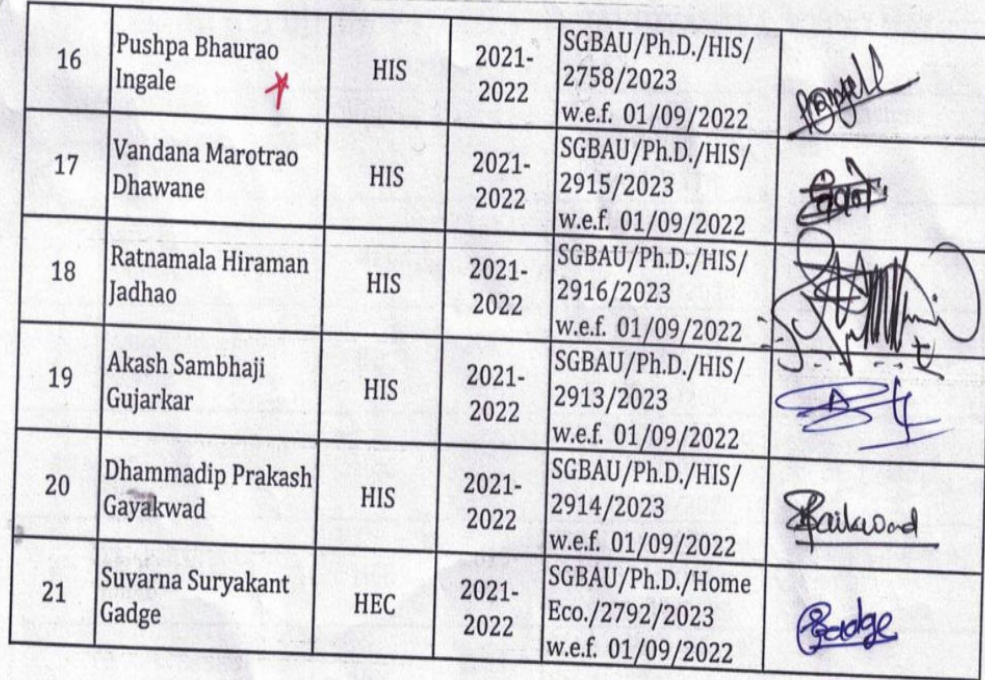 16
Pushpa Bhaurao
Ingale
HIS
2021-
2022
SGBAU/Ph.D./HIS/
2758/2023
w.e.f. 01/09/2022
17
Vandana Marotrao
Dhawane
HIS
2021-
2022
SGBAU/Ph.D./HIS/
2915/2023
w.e.f. 01/09/2022
18
Ratnamala Hiraman
Jadhao
HIS
2021-
2022
SGBAU/Ph.D./HIS/
2916/2023
w.e.f. 01/09/2022
19
Akash Sambhaji
Gujarkar
HIS
2021-
2022
SGBAU/Ph.D./HIS/
2913/2023
w.e.f. 01/09/2022
20
Dhammadip Prakash
Gayakwad
HIS
2021-
2022
SGBAU/Ph.D./HIS/
2914/2023
w.e.f. 01/09/2022
21
Suvarna Suryakant
Gadge
HEC
2021-
2022
SGBAU/Ph.D./Home
Eco./2792/2023
w.e.f. 01/09/2022
Gadge